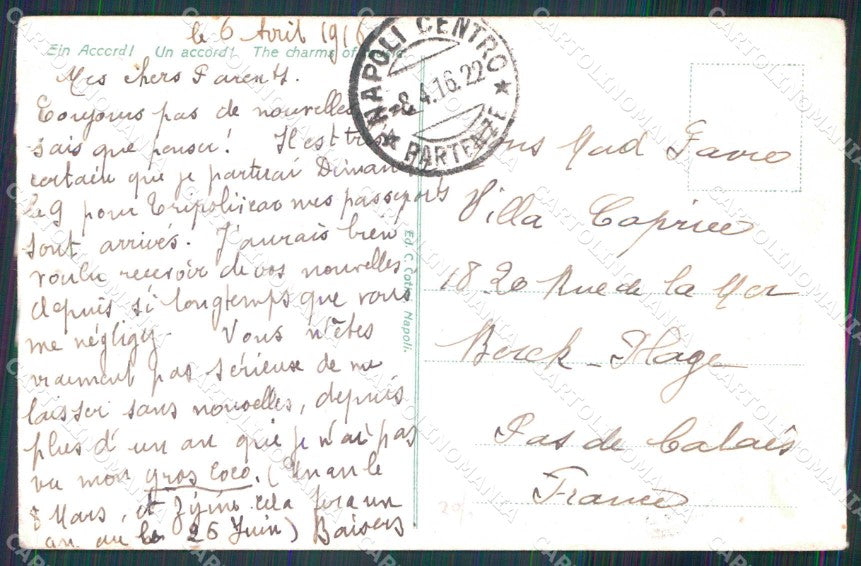 le 6 Avril 1916
Ein Accord! Un accord! The charms of
Mes chers Parents.
Toujours pas de nouvelles
sais que penser! Il est très
certain que je partirai Diman
le 9 pour Tripoli, car mes passeports
sont arrivés. J'aurais bien
voulu recevoir de vos nouvelles
depuis si longtemps que vous
me négligez. Vous n'êtes
vraiment pas sérieuse de me
laisser sans nouvelles, depuis
plus d'un an que je n'ai pas
vu mon gros Coco. (Un an le
8 Mars, et cela fera un
an au le 26 Juin) Baisers
NAPOLI CENTRO
-8.4.16.22
★ PARTENZE ★
Ed. C. Napoli.
Mad Favre
Villa Caprice
18 20 Rue de la Mer
Berck-Plage
Pas de Calais
France
CARTOLINOMANIA